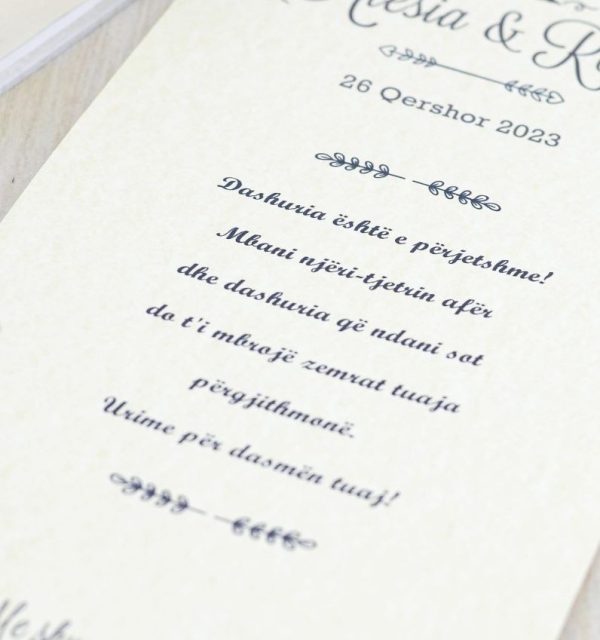 &
26 Qershor 2023
Dashuria është e përjetshme!
Mbani njëri-tjetrin afër
dhe dashuria që ndani sot
do t'i mbrojë zemrat tuaja
përgjithmonë.
Urime për dasmën tuaj!